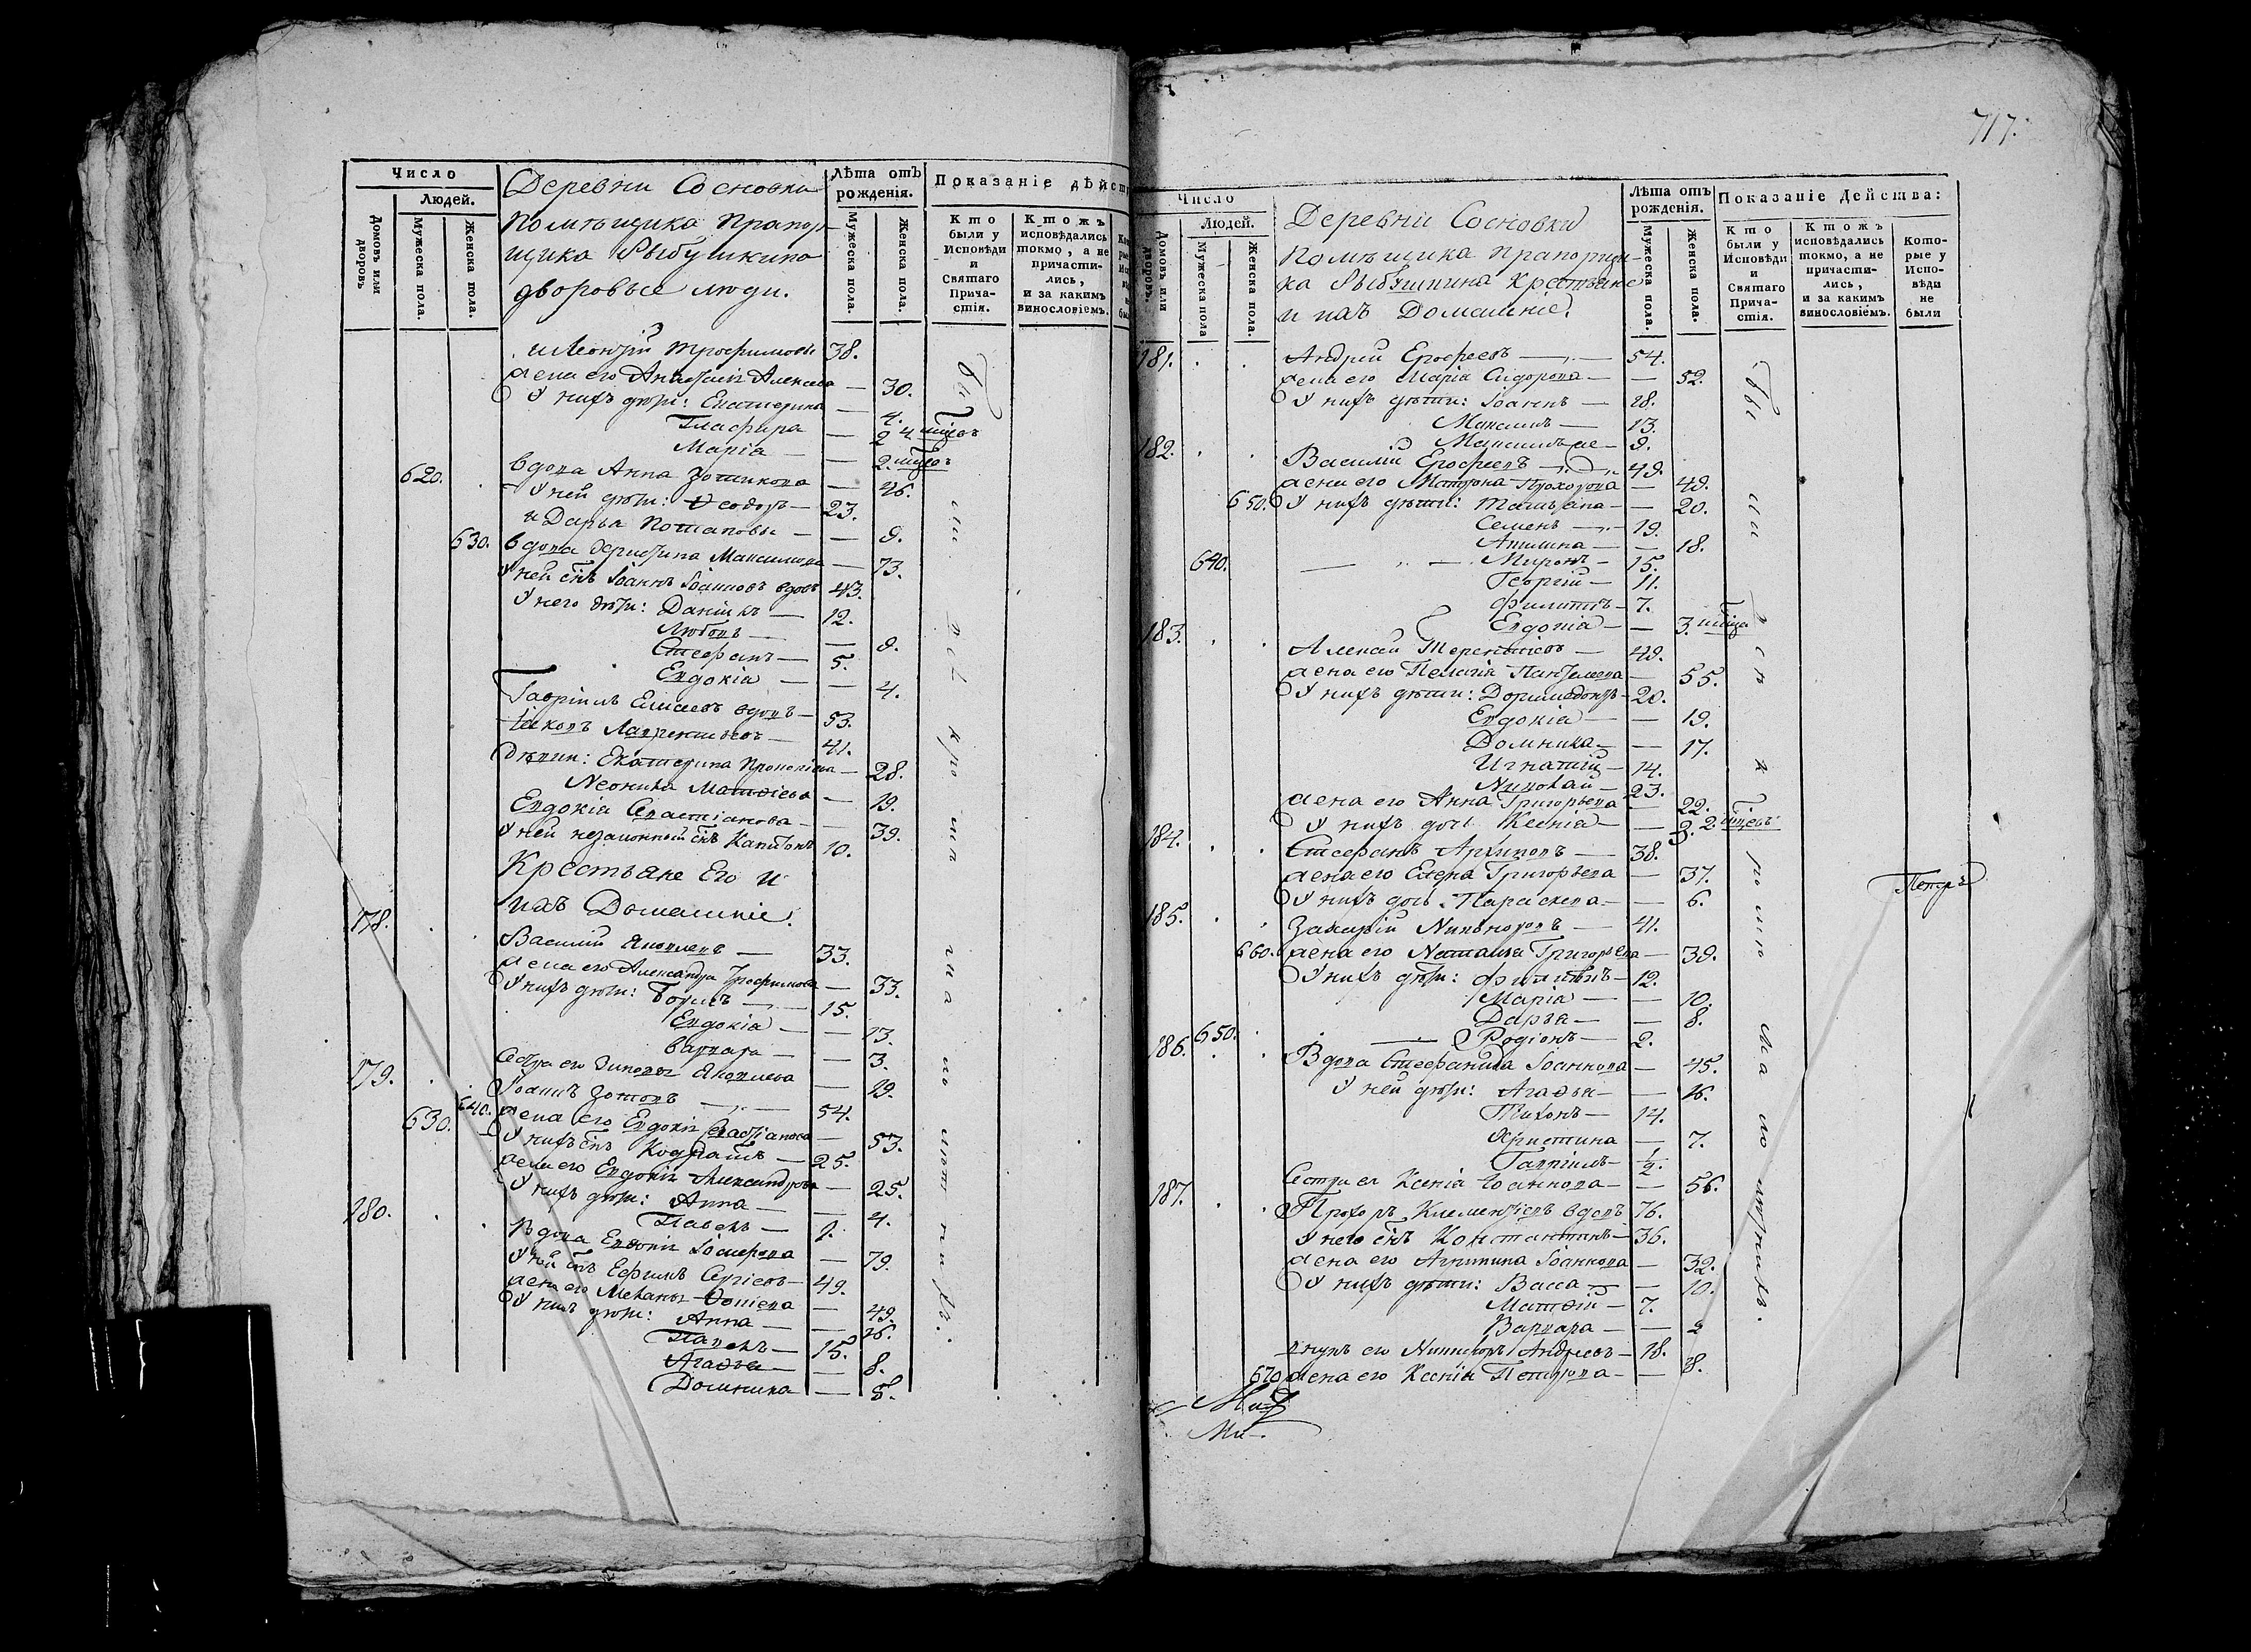 Число
Людей.
Домовъ или дворовъ
Мужеска пола.
Женска пола.
Деревни Сосновки
Помѣщика Прапор-
щика Рыбушкина
дворовые люди.
Лѣта отъ рожденія.
Мужеска пола.
Женска пола.
Показаніе дѣйст
Кто были у Исповѣди и Святаго Прича- стія.
Ктожъ исповѣдались токмо, а не причасти- лись, и за какимъ винословіемъ.
Леонтій Трофимовъ 38.
жена его Анастасія Алексѣева — 30.
У нихъ дѣти: Екатерина — 4.
Глафира — 2
Марія — 2.
620. вдова Анна Зотикова — 46.
У ней дѣти: Ѳеодоръ — 23.
и Дарья Потаповы — 9.
630. вдова Христина Максимова — 73.
У ней снъ Іоаннъ Іоанновъ вдовъ 43.
У него дѣти: Даніилъ — 12.
Любовь — 9.
Стефанъ — 5.
Евдокія — 4.
Гавріилъ Елисеевъ вдовъ — 53.
Іаковъ Лаврентьевъ — 41.
Дѣвки: Екатерина Прокопіева — 28.
Леонила Матѳіева — 19.
Евдокія Севастіанова — 39.
У ней незаконный снъ Капитонъ 10.
Крестьяне Его и
ихъ Домашніе.
178.
Василій Яковлевъ — 33.
жена его Александра Трофимова — 33.
У нихъ дѣти: Борисъ — 15.
Евдокія — 13.
Варвара — 3.
Сестра его Зиновія Яковлева — 19.
179. Іоаннъ Зотовъ — 54.
630. 640. жена его Евдокія Севастіанова — 53.
У нихъ снъ Кодратъ — 25.
жена его Евдокія Александрова — 25.
У нихъ дѣти: Анна — 4.
Павелъ — 1.
180. Вдова Евдокія Іосифова — 79.
У ней снъ Ефимъ Сергіевъ — 49.
жена его Меланія — 49.
У нихъ дѣти: Анна — 16.
Павелъ — 15.
Агаѳья — 8.
Домника — 8.
717.
Число
Людей.
Домовъ или дворовъ.
Мужеска пола
Женска пола.
Деревни Сосновки
Помѣщика Прапорщи-
ка Рыбушкина Крестьяне
и ихъ Домашніе.
Лѣта отъ рожденія.
Мужеска пола.
Женска пола.
Показаніе Дѣйства:
Кто были у Исповѣди и Святаго Прича- стія.
Ктожъ исповѣдались токмо, а не причасти- лись, и за какимъ винословіемъ.
Кото- рые у Испо- вѣди не были
181. Андрей Ерофеевъ — 54.
жена его Марія Сидорова — 52.
У нихъ дѣти: Іоаннъ — 18.
Максимъ — 13.
Максимъ же — 9.
182. Василій Ерофеевъ — 49.
жена его Матрона Прохорова — 49.
650. У нихъ дѣти: Татьяна — 20.
Семенъ — 19.
Акилина — 18.
640. Миронъ — 15.
Георгій — 11.
Филиппъ — 7.
Евдокія — 3.
183. Алексѣй Терентіевъ — 49.
жена его Пелагія — 55.
У нихъ дѣти: Доримедонтъ — 20.
Евдокія — 19.
Домника — 17.
Игнатій — 14.
Николай — 23.
жена его Анна Григорьева — 22.
У нихъ дочь Ксенія — 2.
184. Стефанъ Архиповъ — 38.
жена его Елена Григорьева — 37.
Петръ
У нихъ дочь Параскева — 6.
185. Захарій Никаноровъ — 41.
660. жена его Наталья Григорьева — 39.
У нихъ дѣти: Филиппъ — 12.
Марія — 10.
Дарья — 8.
650. Родіонъ — 2.
186. Вдова Стефанида Іоаннова — 45.
У ней дѣти: Агаѳья — 16.
Тихонъ — 14.
Христина — 7.
Гавріилъ — 1/2.
Сестра ея Ксенія Іоаннова — 56.
187. Прохоръ Клементіевъ вдовъ 76.
У него снъ Константинъ — 36.
жена его Агрипина Іоаннова — 32.
У нихъ дѣти: Васса — 10.
Матѳій — 7.
Варвара — 2
внукъ его Никифоръ Андреевъ — 18.
670 жена его Ксенія Петрова — 18.